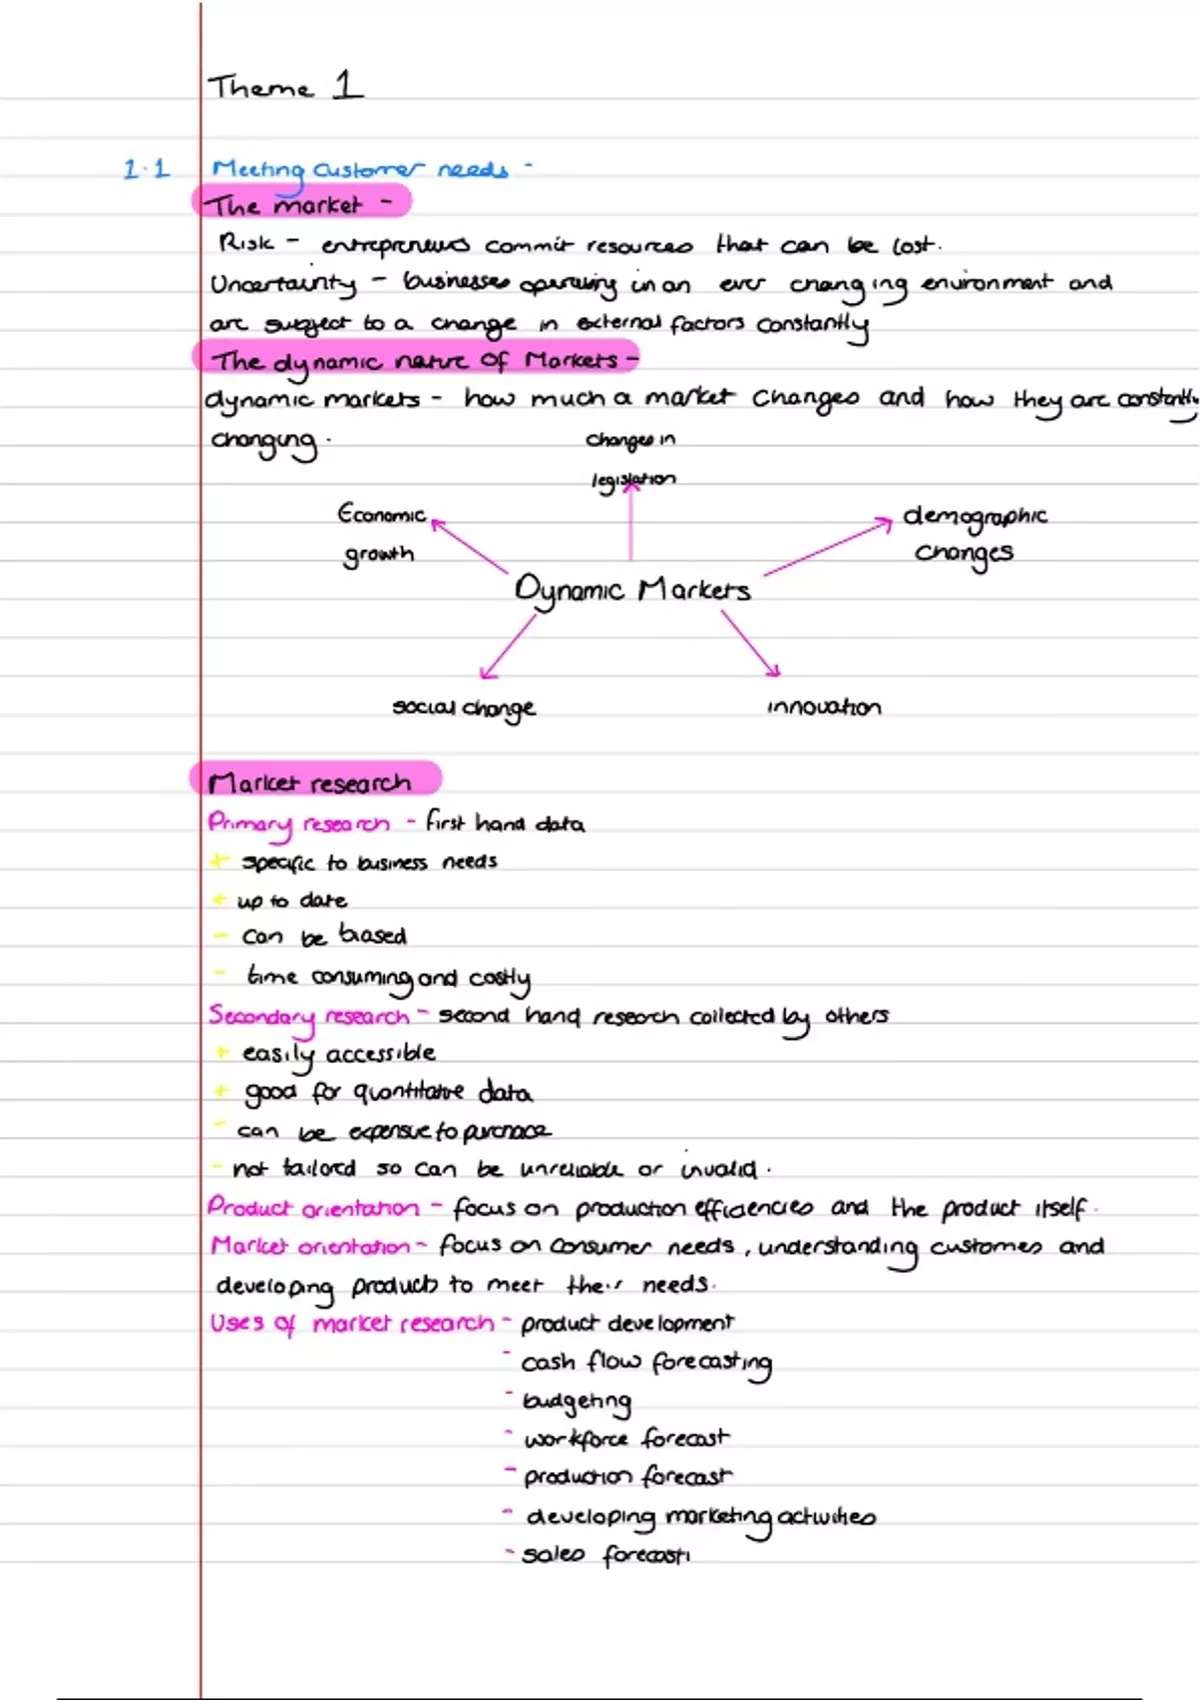 Theme 1
1.1 Meeting customer needs -
The market -
Risk - entrepreneurs commit resources that can be lost.
Uncertainty - businesses operating in an ever changing environment and
are subject to a change in external factors constantly
The dynamic nature of Markets -
dynamic markets - how much a market changes and how they are constantly
changing.
changes in
legislation
Economic
growth
demographic
changes
Dynamic Markets
social change
innovation
Market research
Primary research - first hand data
+ specific to business needs
+ up to date
- can be biased
- time consuming and costly
Secondary research - second hand research collected by others
+ easily accessible
+ good for quantitative data
- can be expensive to purchase
- not tailored so can be unreliable or invalid.
Product orientation - focus on production efficiencies and the product itself.
Market orientation - focus on consumer needs, understanding customers and
developing products to meet their needs.
Uses of market research - product development
- cash flow forecasting
- budgeting
- workforce forecast
- production forecast
- developing marketing activities
- sales forecasti